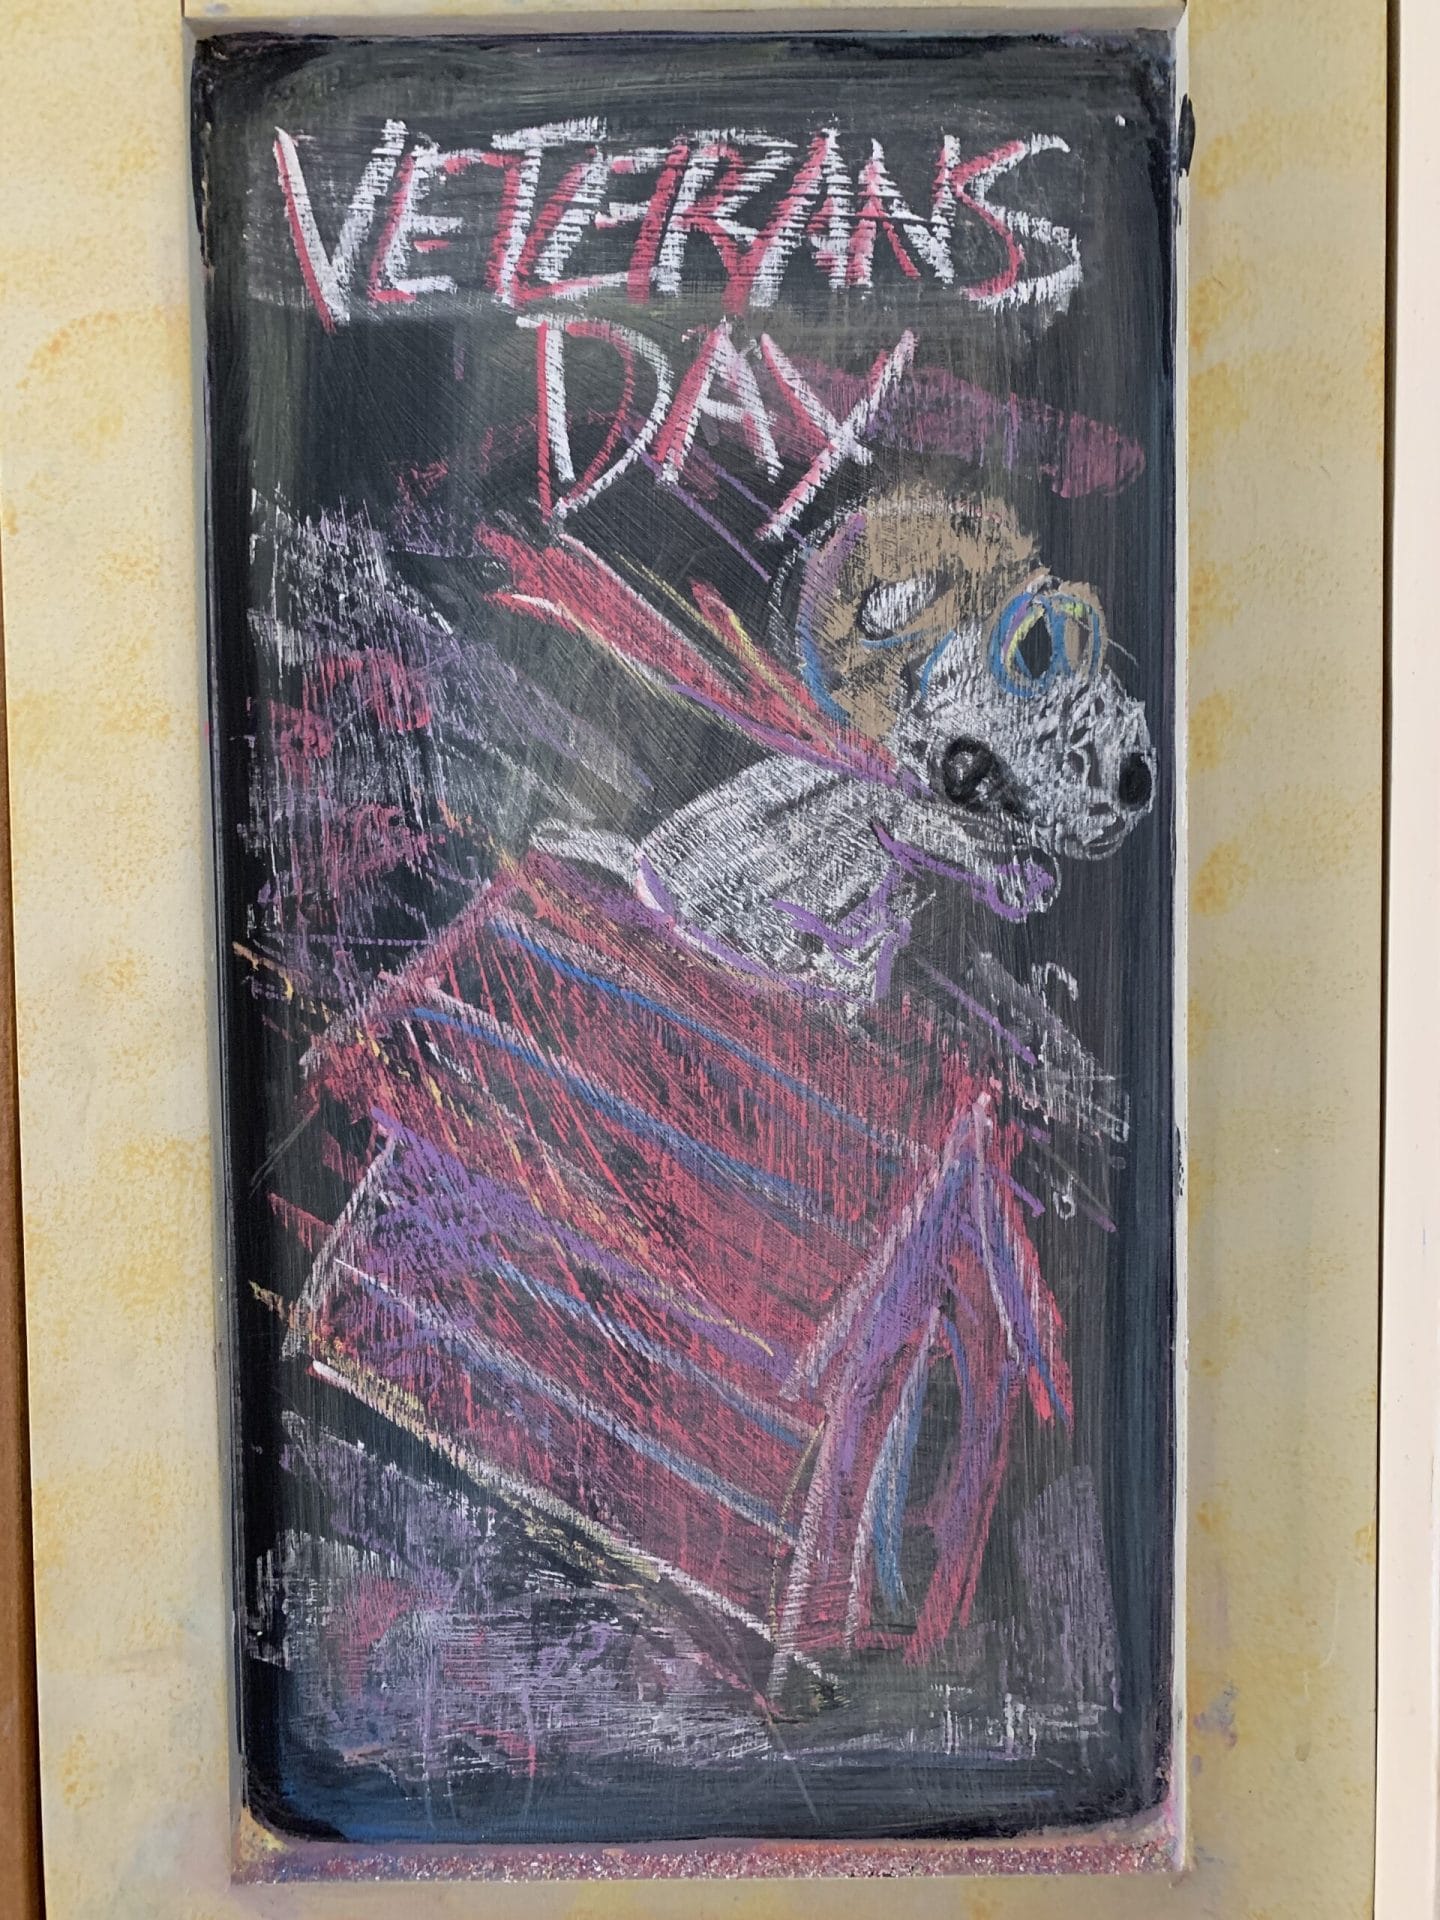 VETERANS
DAY